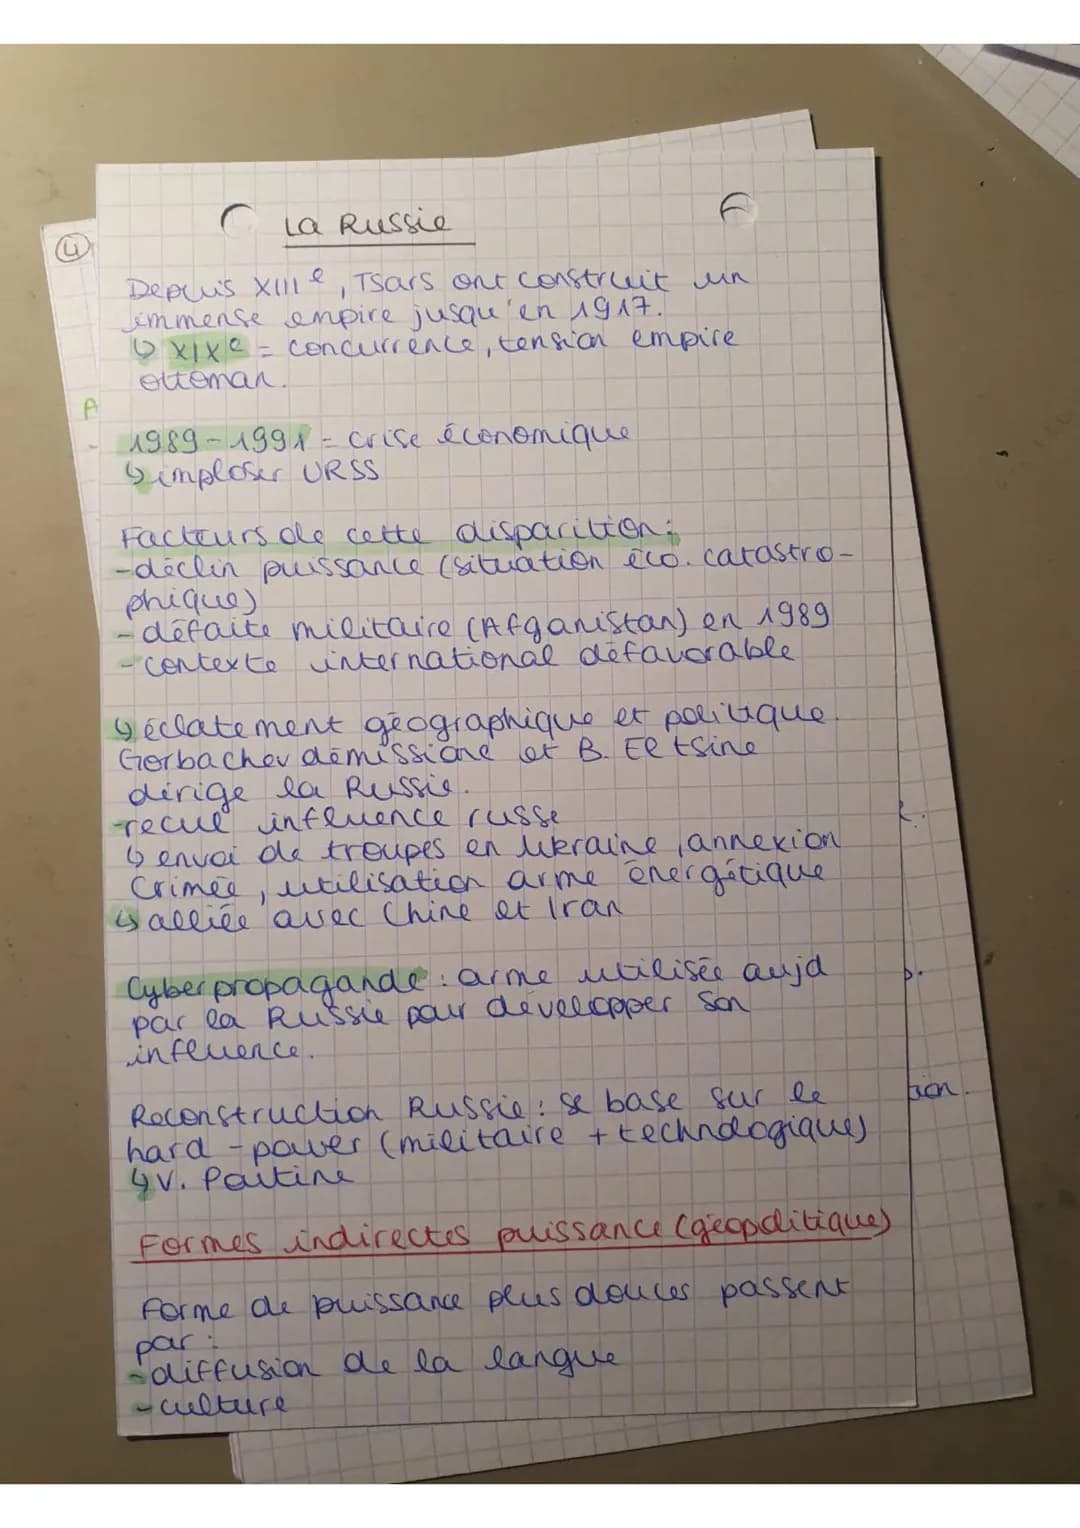 ④
La Russie
Depuis XIIIe, Tsars ont construit un
immense empire jusqu'en 1917.
↳ XIXe = concurrence, tension empire
ottoman.
A
-
1989-1991 = crise économique
↳ imploser URSS
Facteurs de cette disparition:
-déclin puissance (situation éco. catastro-
phique)
-défaite militaire (Afganistan) en 1989
-contexte international défavorable
↳ éclatement géographique et politique.
Gorbachev démissione et B. Eltsine
dirige la Russie.
-recul influence russe
↳ envoi de troupes en Ukraine, annexion
Crimée, utilisation arme énergétique
↳ alliée avec Chine et Iran
Cyberpropagande : arme utilisée aujd
par la Russie pour développer son
influence.
Reconstruction Russie : se base sur le
hard-power (militaire + technologique)
↳ V. Poutine
tion.
Formes indirectes puissance (géopolitique)
Forme de puissance plus douces passent
par :
-diffusion de la langue
-culture